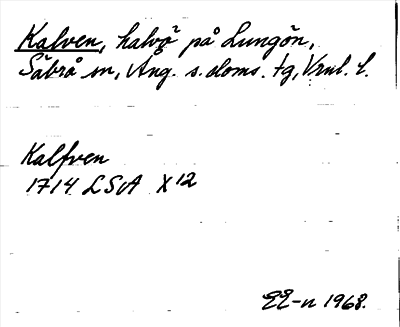 Kalven, halvö på Lungön,
Säbrå sn, Ång. s. doms. tg, Vnl. l.
Kalfven
1714 LSA X 12
EE-n 1968.